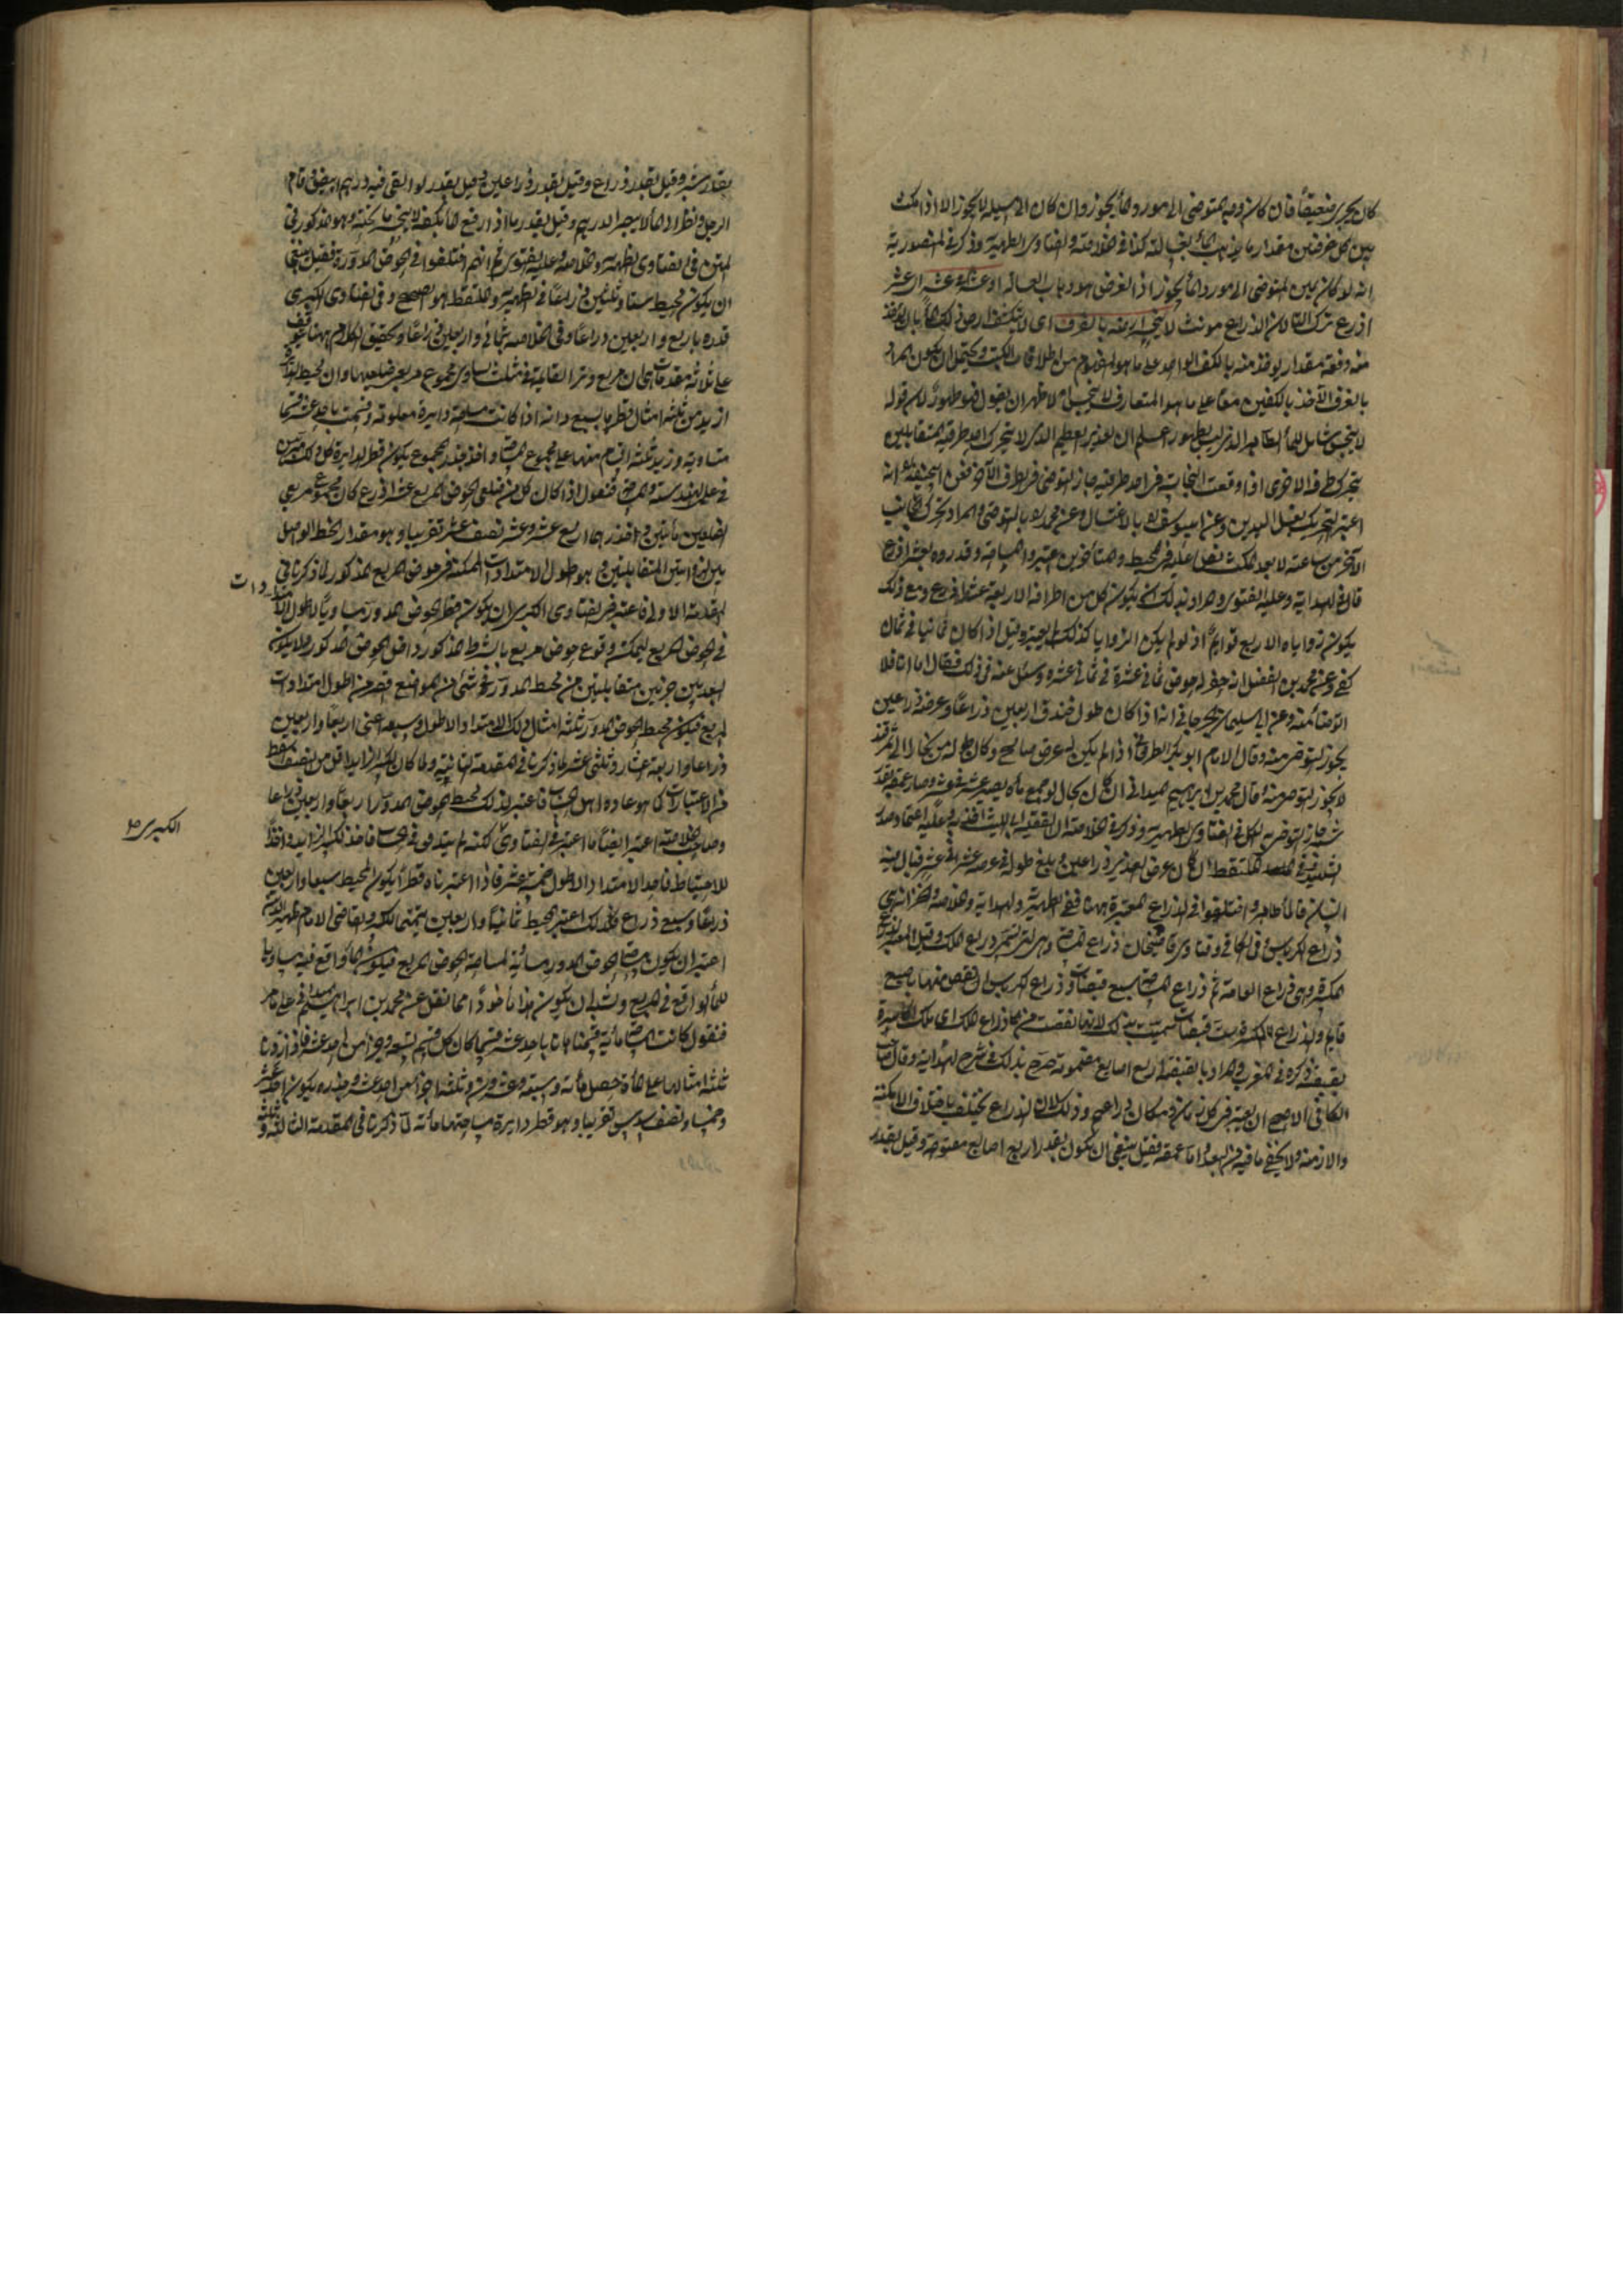 كان يجرى ضعيفا فان كان وجه المتوضى الى مورد الماء يجوز وان كان الى مسيله لا يجوز الا اذا مكث
بين كل غرفتين مقدار ما يذهب الماء بغسالته كذا فى الخلاصة والفتاوى الظهيرية وذكر فى المنصورية
انه لو كان يمين المتوضى الى مورد الماء يجوز اذ الغرض هو ذهاب الغسالة او عشرة فى عشر اى عشر
اذرع ترك التاء لان الذراع مونث لا ينحسر ارضه بالغرف اى لا ينكشف ارض ذلك الماء بان يؤخذ
منه دفعة مقدار يؤخذ منه بالكف الواحد على ما هو المفهوم من اطلاقات الكتب ويحتمل ان يكون المراد
بالغرف الاخذ بالكفين معا على ما هو المتعارف
لا ينجس شامل للماء الطاهر الذى ليس بطهور اعلم ان الغدير العظيم الذى لا يتحرك احد طرفيه المتقابلين
بتحرك طرفه الاخرى اذا وقعت النجاسة فى احد طرفيه جاز التوضى فى الطرف الآخر فعن ابى حنيفة انه
اعتبر التحريك بغسل اليدين وعن ابى يوسف ره بالاغتسال وعن محمد ره بالتوضى والمراد تحرك الجانب
الآخر من ساعته لا بعد المكث نص عليه فى المحيط والمتأخرين اعتبروا المساحة وقدروه بعشر اذرع
قال فى الهداية وعليه الفتوى والمراد بذلك ان يكون كل من اطرافه الاربعة عشر اذرع ومع ذلك
يكون زواياه الاربع قوائم اذ لو لم يكن الزوايا كذلك لم يعتبر وقيل اذا كان ثمانيا فى ثمان
كفى وعن محمد بن الفضل انه حفر له حوض ثمانى عشرة فى ثمانى عشره وسئل عنه فى ذلك فقال اما انا فلا
اتوضا منه وعن ابى سليمان الجرجانى انه اذا كان طول خندق اربعين ذراعا وعرضه ذراعين
يجوز التوضى منه وقال الامام ابو بكر الطرخانى اذا لم يكن له عرض صالح وكان طوله من بخارا الى سمرقند
لا يجوز التوضى منه وقال محمد بن ابراهيم الميدانى ان كان بحال لو جمع ماؤه يصير عشر فى عشر وصار عمقه بقدر
شبر جاز التوضى به الكل فى الفتاوى الظهيرية وذكر فى الخلاصة ان الفقيه ابا الليث اخذ به وعليه اعتماد صدر
الشهيد
انسان فالماء طاهر واختلفوا فى الذراع المعتبرة ههنا ففى الظهيرية والهداية والخلاصة والخزانة هى
ذراع الكرباس وفى الكافى وفتاوى قاضيخان ذراع المساحة
المكسرة وهى ذراع العامة ثم ذراع المساحة سبع قبضات وذراع الكرباس انقص منها باصبع
قايم والذراع المكسرة ست قبضات سميت بذلك لانها نقصت من ذراع الملك اى ملك الاكاسرة
بقبضة ذكره فى المغرب والمراد بالقبضة اربع اصابع مضمومة صرح بذلك فى شرح الهداية وقال صاحب
الكافى الاصح ان يعتبر فى كل زمان ومكان ذراعهم وذلك لان الذراع يختلف باختلاف الامكنة
والازمنة ولا يخفى ما فيه من البعد واما عمقه فقيل ينبغى ان يكون بقدر اربع اصابع مفتوحة وقيل بقدر
بقدر شبر وقيل بقدر ذراع وقيل بقدر ذراعين وقيل بقدر لو القى فيه درهم ابيض وقام
الرجل ونظر الى الماء لا يرى الدرهم وقيل بقدر ما اذا رفع الماء بكفه لا ينحسر ما تحته وهو المذكور فى
المتن وفى الفتاوى الظهيرية والخلاصة وعليه الفتوى ثم انهم اختلفوا فى الحوض المدور فقيل ينبغى
ان يكون محيطه ستا وثلثين ذراعا فى الظهيرية والملتقط هو الصحيح وفى الفتاوى الكبرى
قدره باربع واربعين ذراعا وفى الخلاصة بثمانى واربعين ذراعا وتحقيق الكلام ههنا يتوقف
على ثلثة مقدمات هى ان مربع وتر القايمة فى مثلث يساوى مجموع مربعى ضلعيها وان محيط الدائرة
ازيد من ثلثة امثال قطرها بسبع وانه اذا كانت مساحة دايرة معلومة وقسمت باحد عشر قسما
متساوية وزيد ثلثة اقسام منها على مجموع المساحة واخذ جذر المجموع يكون قطر الدايرة كل ذلك مبرهن
فى علم الهندسة والمساحة فنقول اذا كان كل من ضلعى الحوض المربع عشر اذرع كان مجموع مربعى
الضلعين مأتين وجذرها اربع عشر وعشر ونصف عشر تقريبا وهو مقدار الخط الواصل
بين الزاويتين المتقابلتين وهو اطول الامتدادات الممكنة فى حوض المربع المذكور لما ذكرنا فى
المقدمة الاولى فاعتبر فى الفتاوى الكبرى ان يكون قطر الحوض المدور مساويا لاطول الامتدادات
فى الحوض المربع ليمكن وقوع حوض مربع بالشرط المذكور داخل الحوض المذكور ولا يكون
البعد بين جزئين متقابلين من محيط المدور فى شئ من المواضع اقصر من اطول امتدادات
المربع فيكون محيط الحوض المدور ثلثة امثال ذلك الامتداد الاطول وسبعه اعنى اربعا واربعين
ذراعا واربعة اعشار وثلثى عشر لما ذكرنا فى المقدمة الثانية ولما كان الكسر الزايد اقل من النصف اسقط
عن الاعتبار كما هو عادة اهل الحساب فاعتبر لذلك محيط الحوض المدور اربعا واربعين ذراعا
وصاحب الخلاصة اعتبر ايضا ما اعتبر فى الفتاوى الكبرى لكنه لم يتدقق فى الحساب فاخذ الكسر الزايد واحدا
للاحتياط فاخذ الامتداد الاطول خمسة عشر فاذا اعتبرناه قطرا يكون المحيط سبعا واربعين
ذراعا وسبع ذراع فلذلك اعتبر المحيط ثمانيا واربعين تتميما للكسر والقاضى الامام ظهير الدين
اعتبر ان يكون مساحة الحوض المدور مساوية لمساحة الحوض المربع فيكون الماء الواقع فيه مساويا
للماء الواقع فى المربع ويشبه ان يكون هذا ماخوذا مما نقل عن محمد بن ابراهيم الميدانى على ما مر
فنقول كانت المساحة مأية قسمناها باحد عشر قسما كان كل قسم تسعة وجزأ من احد عشر فاذا زدنا
ثلثة امثالها على المأة حصل مأة وسبعة وعشرون وثلثة اجزاء من احد عشر وجذره يكون احد عشر
وخمسا ونصف سدس تقريبا وهو قطر دايرة مساحتها مأته لما ذكرنا فى المقدمة الثالثة
الكبرى صح